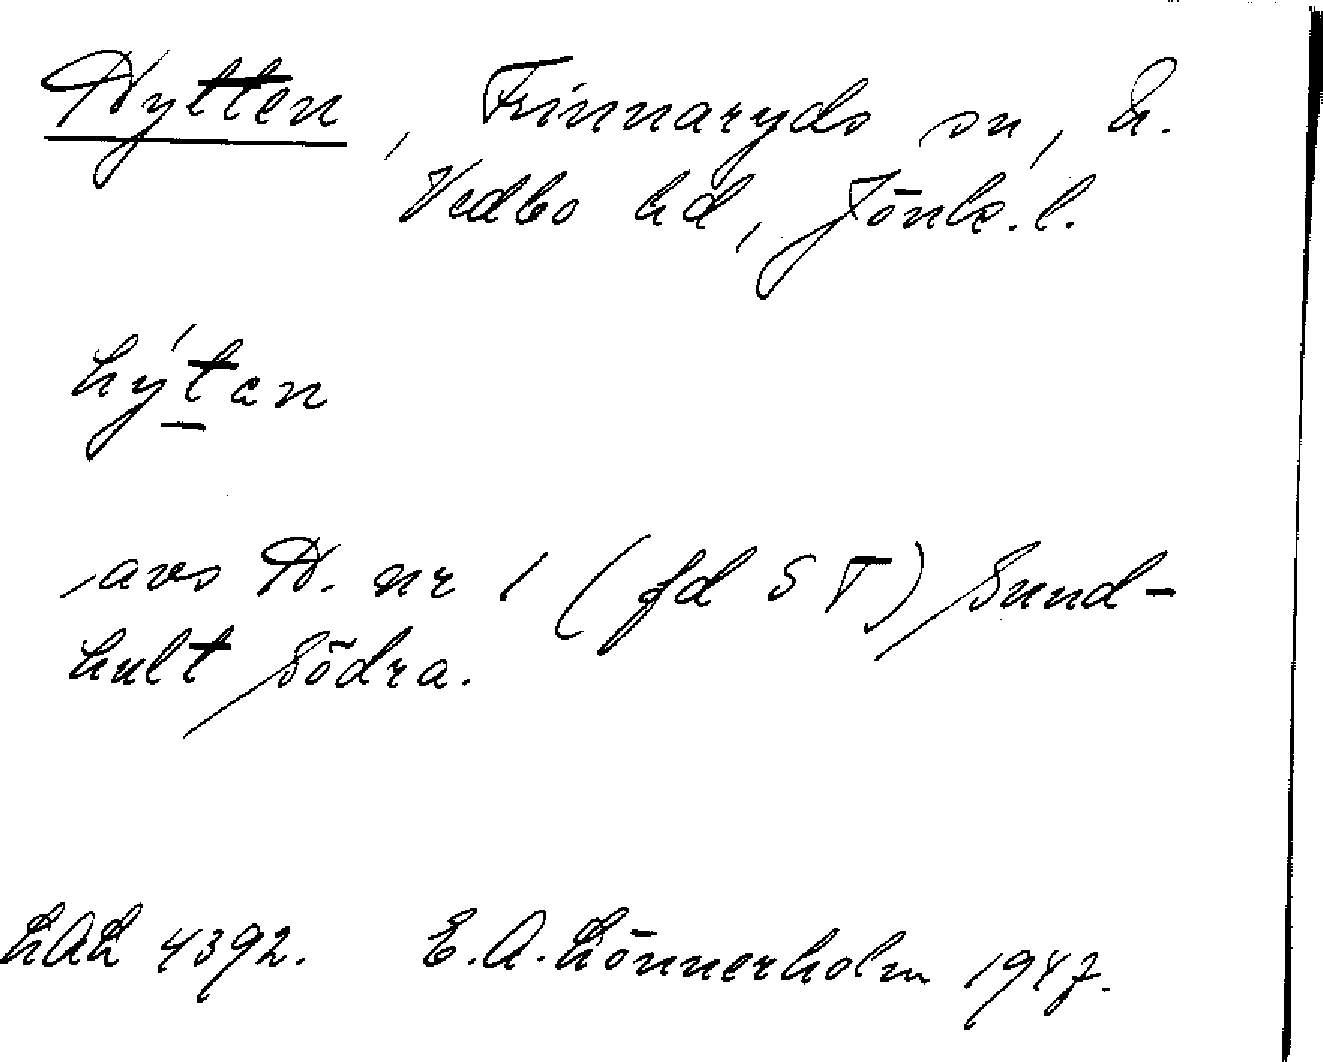 Hytten, Frinnaryds sn, N.
Vedbo hd, Jönk. l.
hýten
avs H. nr 1 (fd S T) Sund-
hult Södra.
LAL 4392. E. A. Lönnerholm 1947.